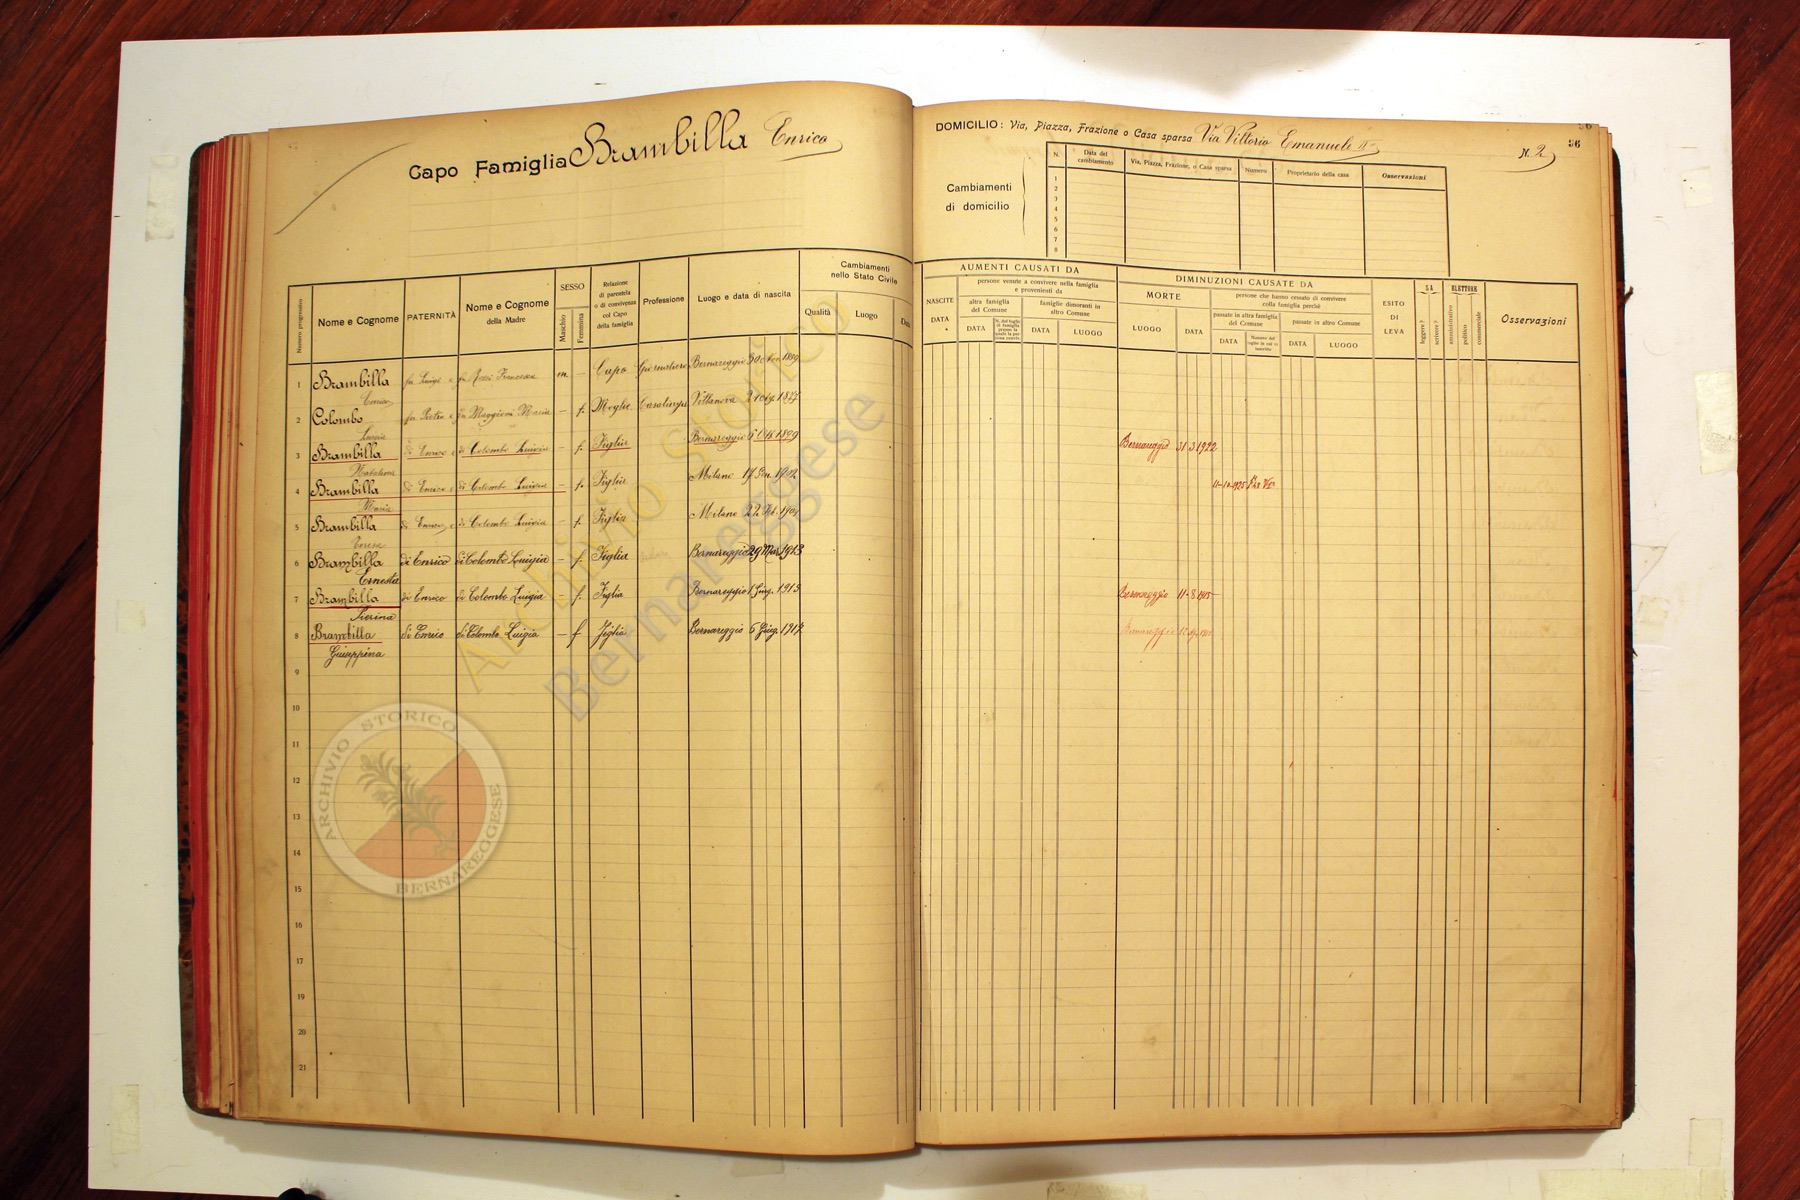 Capo Famiglia Brambilla Enrico
DOMICILIO: Via, Piazza, Frazione o Casa sparsa Via Vittorio Emanuele II° N. 2
36
Cambiamenti di domicilio
N. Data del cambiamento Via, Piazza, Frazione, o Casa sparsa Numero Proprietario della casa Osservazioni
1
2
3
4
5
6
7
8
Numero progressivo Nome e Cognome PATERNITÀ Nome e Cognome della Madre SESSO Maschio Femmina Relazione di parentela o di convivenza col Capo della famiglia Professione Luogo e data di nascita Cambiamenti nello Stato Civile Qualità Luogo Data
AUMENTI CAUSATI DA
NASCITE DATA
persone venute a convivere nella famiglia e provenienti da
altra famiglia del Comune DATA
famiglie dimoranti in altro Comune DATA LUOGO
DIMINUZIONI CAUSATE DA
MORTE LUOGO DATA
persone che hanno cessato di convivere colla famiglia perchè
passate in altra famiglia del Comune DATA
passate in altro Comune DATA LUOGO
ESITO DI LEVA
SA leggere? scrivere?
ELETTORE amministrativo politico commerciale
Osservazioni
1 Brambilla Enrico fu Luigi e fu Rossi Francesca m. – Capo Giornaliere Bernareggio 30
2 Colombo Luigia fu Pietro e fu Maggioni Maria – f. Moglie Casalinga Villanova 1877
3 Brambilla di Enrico e di Colombo Luigia – f. Figlia Bernareggio 6 1899 Bernareggio 31-3 1922
4 Brambilla Maria di Enrico e di Colombo Luigia – f. Figlia Milano 17 Gen. 1902 11-10-1925
5 Brambilla Teresa di Enrico e di Colombo Luigia – f. Figlia Milano 22 Feb. 1904
6 Brambilla Ernesta di Enrico di Colombo Luigia – f. Figlia Bernareggio 29 Mar. 1913
7 Brambilla Pierina di Enrico di Colombo Luigia – f. Figlia Bernareggio 1 Giug. 1915 Bernareggio 11-8 1915
8 Brambilla Giuseppina di Enrico di Colombo Luigia – f Figlia Bernareggio 6 Giug. 1917 Bernareggio
9
10
11
12
13
14
15
16
17
19
20
21
Archivio Storico
Bernareggese
ARCHIVIO STORICO
BERNAREGGESE